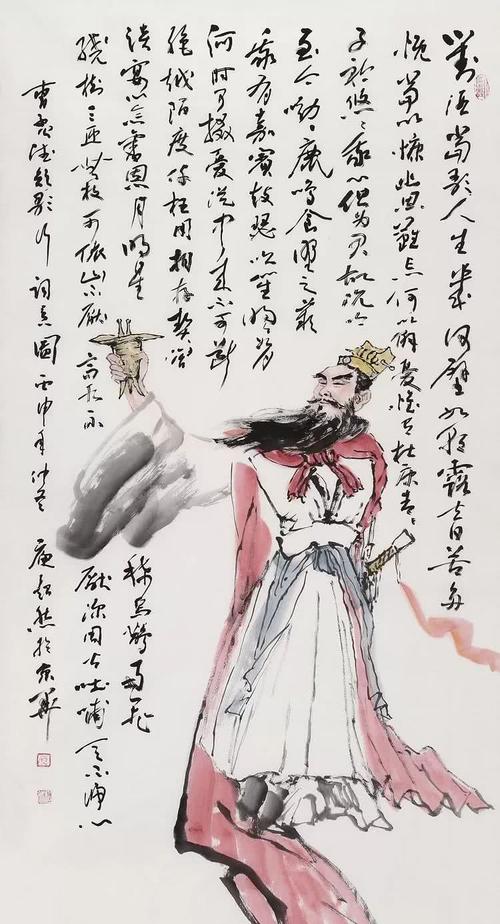 對酒當歌人生幾何譬如朝露去日苦多
慨當以慷憂思難忘何以解憂惟有杜康青青
子衿悠悠我心但为君故沉吟
至今呦呦鹿鳴食野之蘋
我有嘉賓鼓瑟吹笙明明
何時可掇憂從中來不可斷
絕越陌度阡枉用相存契闊
談宴心念舊恩月明星
稀烏鵲南飛
繞樹三匝無枝可依山不厭高水不
厭深周公吐哺天下歸心
曹孟德短歌行詞意圖丙申年仲冬於京華